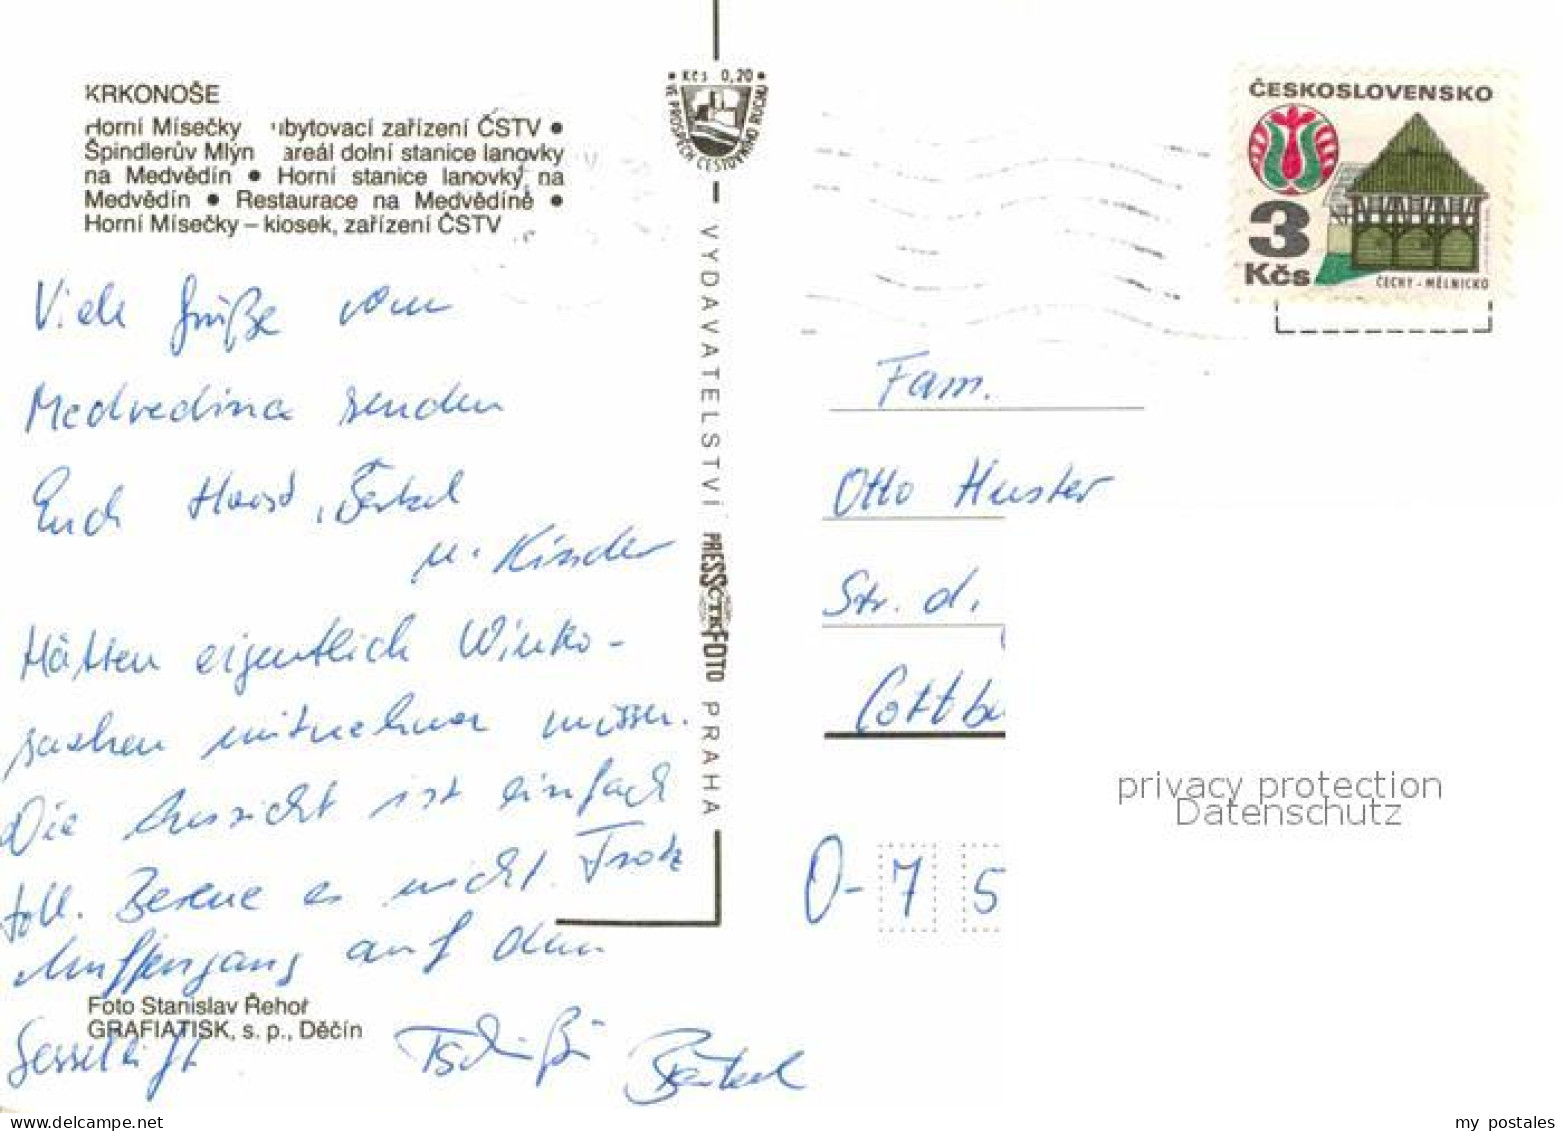 KRKONOŠE
Horní Mísečky ubytovací zařízení ČSTV ●
Špindlerův Mlýn areál dolní stanice lanovky
na Medvědín ● Horní stanice lanovky na
Medvědín ● Restaurace na Medvědíně ●
Horní Mísečky – kiosek, zařízení ČSTV
Viele Grüße vom
Medvedina senden
Euch Horst, Bärbel
u. Kinder
Hätten eigentlich Winko-
sachen mitnehmen müssen.
Die Aussicht ist einfach
toll. Bereue es nicht. Trotz
auf dem
Sessellift
Tschüßi Bärbel
Foto Stanislav Řehoř
GRAFIATISK, s. p., Děčín
• Kčs 0,20 •
VE PROSPĚCH CESTOVNÍHO RUCHU
VYDAVATELSTVÍ PRESSFOTO PRAHA
ČTK
ČESKOSLOVENSKO
3
Kčs
ČECHY - MĚLNICKO
Fam.
Otto Huster
Str. d.
Cottbu
O-75
privacy protection
Datenschutz
www.delcampe.net
my postales